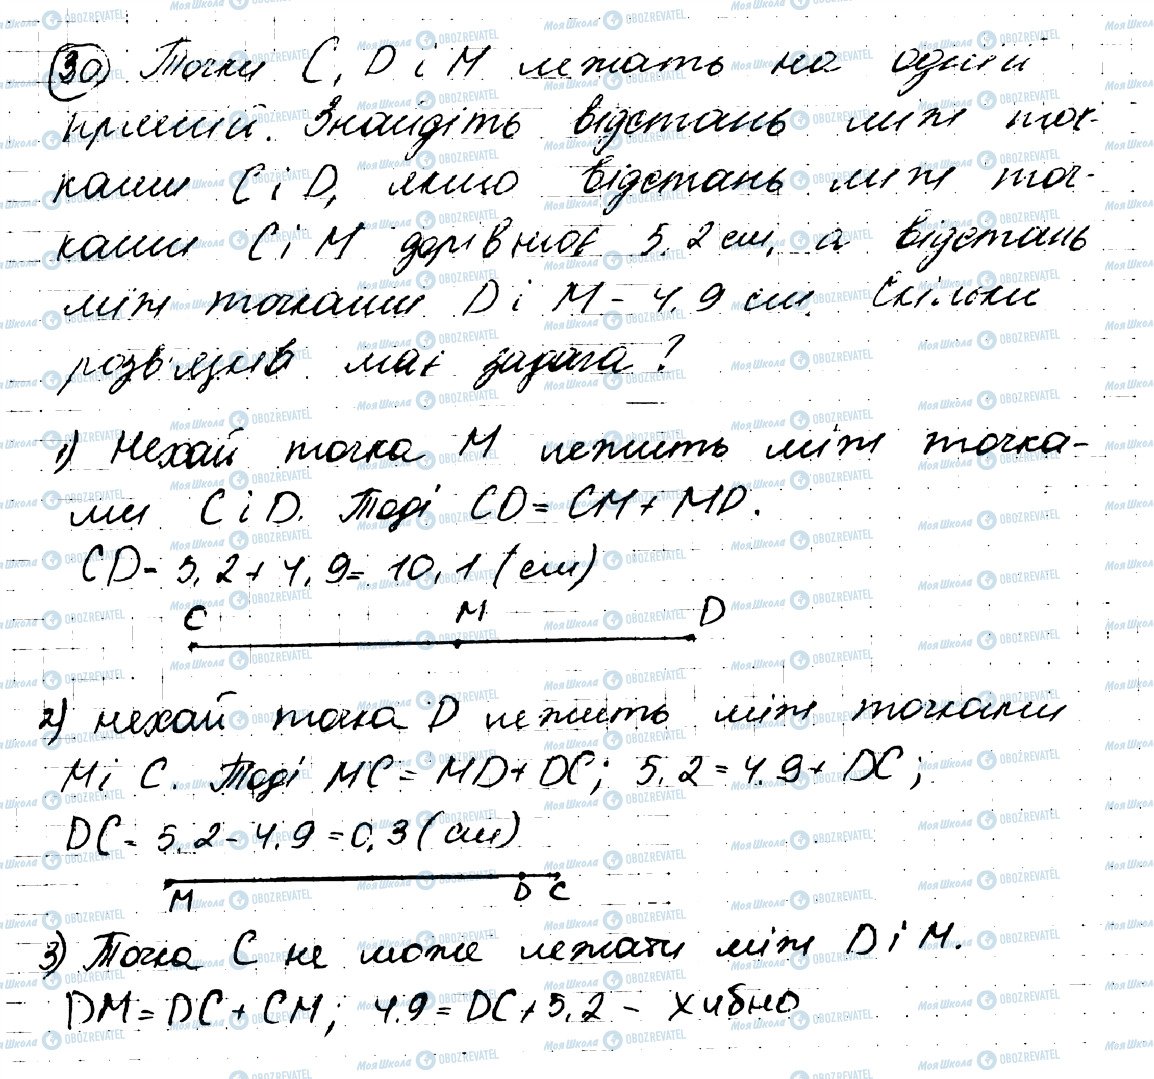 30) Точки C, D і M лежать на одній
прямій. Знайдіть відстань між точ-
ками C і D, якщо відстань між точ-
ками C і M дорівнює 5,2 см, а відстань
між точками D і M - 4,9 см. Скільки
розв'язків має задача?
1) Нехай точка M лежить між точка-
ми C і D. Тоді CD = CM + MD.
CD = 5,2 + 4,9 = 10,1 (см)
C M D
2) Нехай точка D лежить між точками
M і C. Тоді MC = MD + DC; 5,2 = 4,9 + DC;
DC = 5,2 - 4,9 = 0,3 (см)
M D C
3) Точка C не може лежати між D і M.
DM = DC + CM; 4,9 = DC + 5,2 - хибно
МояШкола OBOZREVATEL